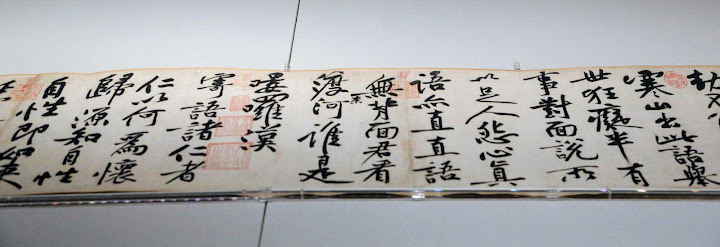 寒山出此語舉
世狂癡半有
事對面說所
以足人怨心真
語亦直直語
無背面君看
渡奈河誰是
嘍羅漢
寄語諸仁者
仁以何為懷
歸源知自性
自性即如來